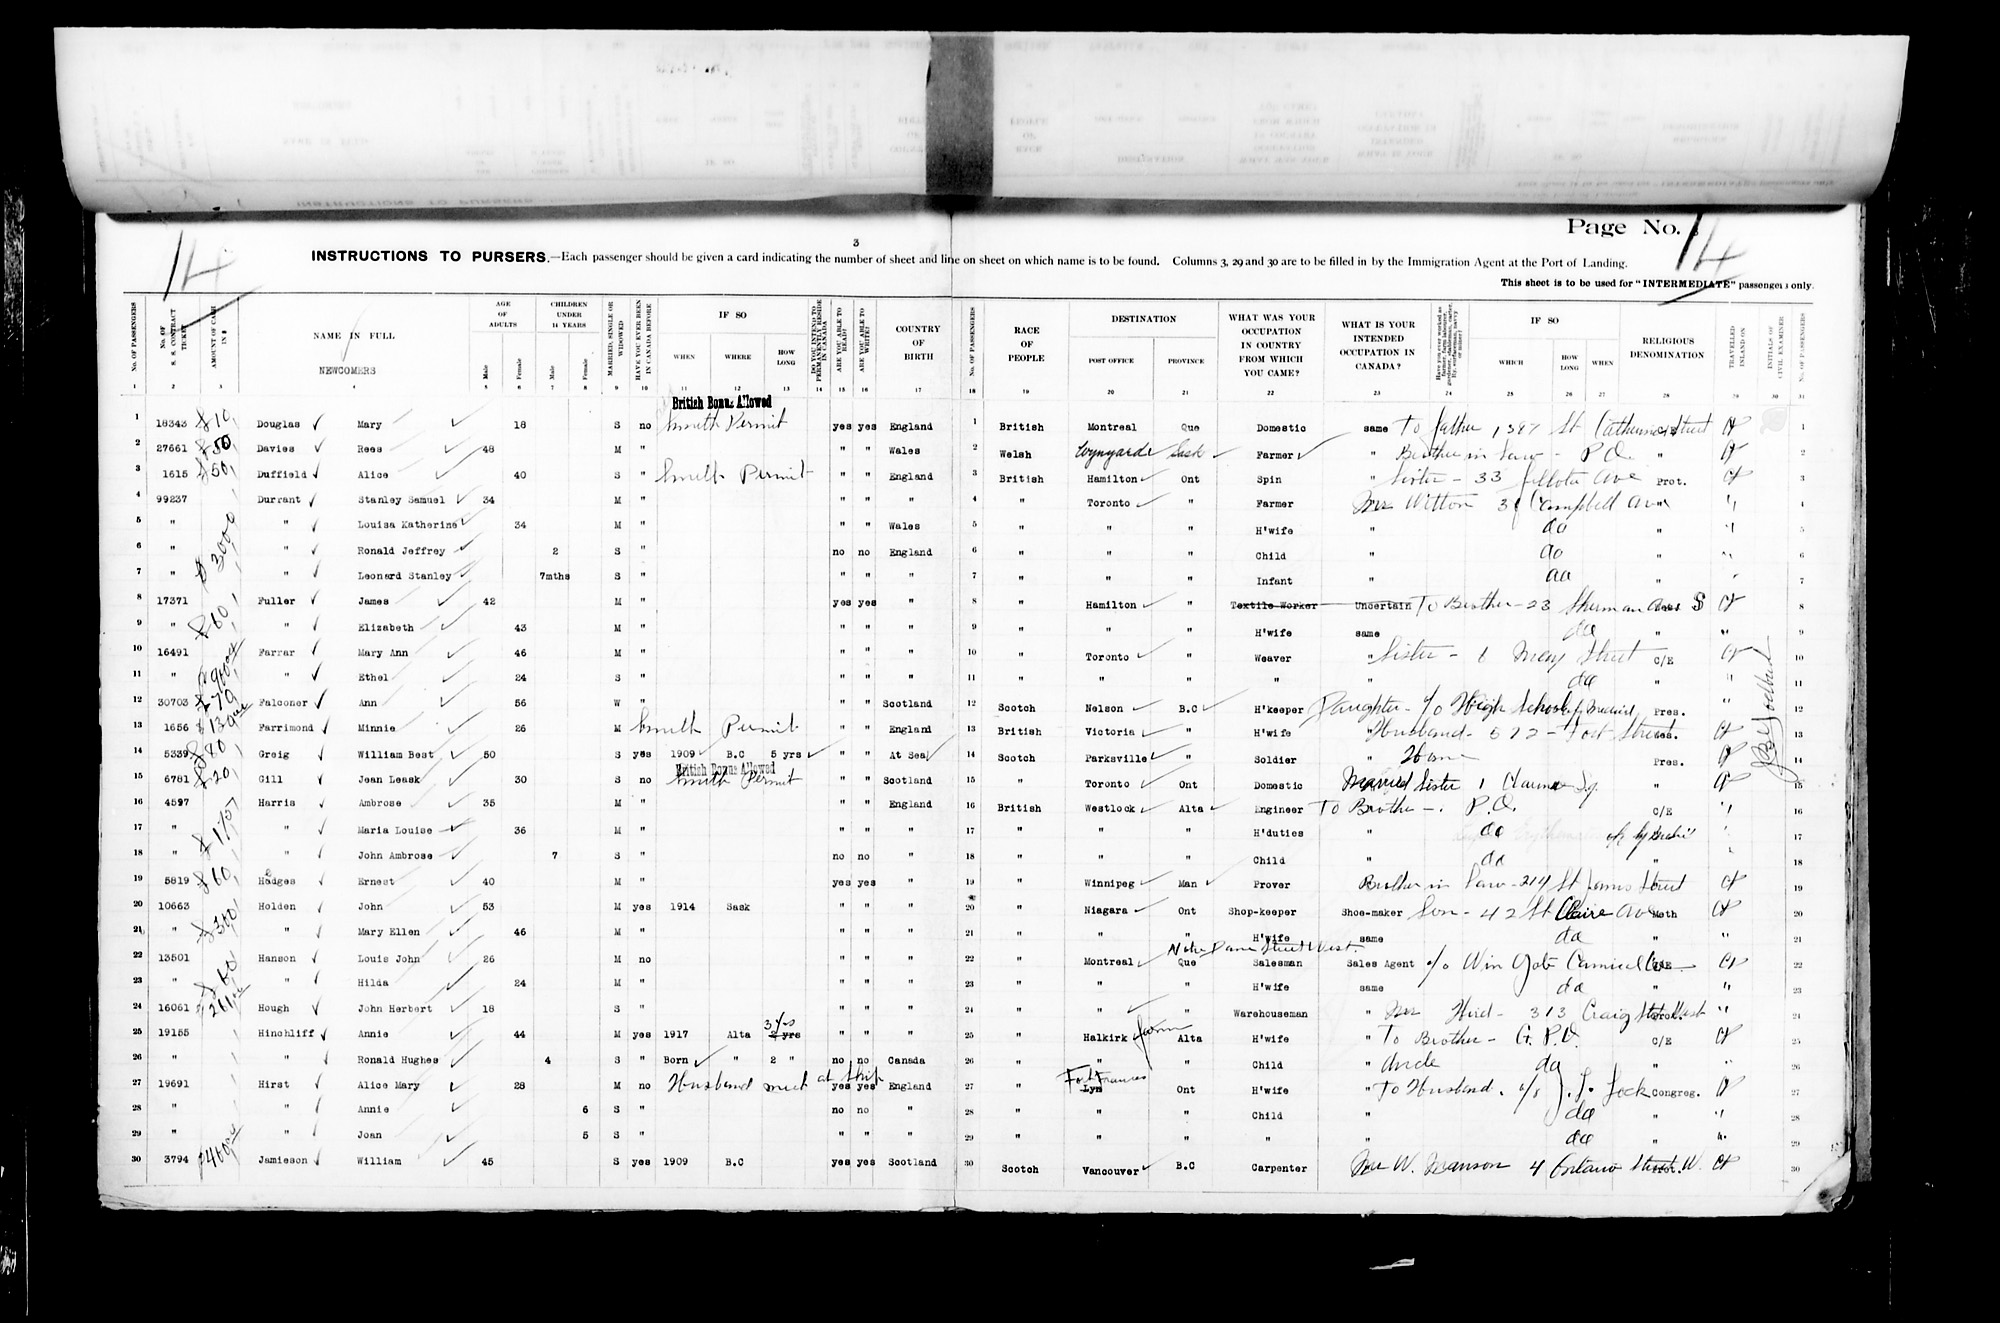 Page No. 14
14
3
INSTRUCTIONS TO PURSERS.—Each passenger should be given a card indicating the number of sheet and line on sheet on which name is to be found. Columns 3, 29 and 30 are to be filled in by the Immigration Agent at the Port of Landing.
This sheet is to be used for "INTERMEDIATE" passengers only.
No. OF PASSENGERS No. OF S. S. CONTRACT TICKET AMOUNT OF CASH IN $ NAME IN FULL NEWCOMERS AGE OF ADULTS Male Female CHILDREN UNDER 14 YEARS Male Female MARRIED, SINGLE OR WIDOWED HAVE YOU EVER BEEN IN CANADA BEFORE IF SO WHEN WHERE HOW LONG DO YOU INTEND TO PERMANENTLY RESIDE IN CANADA ARE YOU ABLE TO READ? ARE YOU ABLE TO WRITE? COUNTRY OF BIRTH No. OF PASSENGERS RACE OF PEOPLE DESTINATION POST OFFICE PROVINCE WHAT WAS YOUR OCCUPATION IN COUNTRY FROM WHICH YOU CAME? WHAT IS YOUR INTENDED OCCUPATION IN CANADA? IF SO WHICH HOW LONG WHEN RELIGIOUS DENOMINATION TRAVELLED INLAND ON INITIALS OF CIVIL EXAMINER No. OF PASSENGERS
1 2 3 4 5 6 7 8 9 10 11 12 13 14 15 16 17 18 19 20 21 22 23 24 25 26 27 28 29 30 31
British Bonus Allowed
1 18343 $10 Douglas Mary 18 S no Permit yes yes England 1 British Montreal Que Domestic same To father 1387 St Catherine Street C/E 1
2 27661 $50 Davies Rees 48 M " " " Wales 2 Welsh Wynyarde Sask Farmer " Brother in law - P.O. " 2
3 1615 $50 Duffield Alice 40 S " Permit " " England 3 British Hamilton Ont Spin " Sister - 33 Ave Prot. 3
4 99237 Durrant Stanley Samuel 34 M " " " " 4 " Toronto " Farmer Mrs Witton Campbell Ave " " 4
5 " " Louisa Katherine 34 M " " " Wales 5 " " " H'wife " do " " 5
6 " $3000 " Ronald Jeffrey 2 S " no no England 6 " " " Child " do " " 6
7 " " Leonard Stanley 7mths S " " " " 7 " " " Infant " do " " 7
8 17371 $60 Fuller James 42 M " yes yes " 8 " Hamilton " Textile Worker Uncertain To Brother - 23 Sherman Ave S 8
9 " " Elizabeth 43 M " " " " 9 " " " H'wife same do " " 9
10 16491 Farrar Mary Ann 46 M " " " " 10 " Toronto " Weaver " Sister - 6 Mary Street C/E 10
11 " " Ethel 24 S " " " " 11 " " " " " do " " 11
12 30703 Falconer Ann 56 W " " " Scotland 12 Scotch Nelson B.C H'keeper Daughter - c/o High School Pres. " 12
13 1656 Farrimond Minnie 26 M Permit " " England 13 British Victoria " H'wife " Husband - 572 - Fort Street 13
14 5339 $80 Greig William Best 50 S yes 1909 B.C 5 yrs " " At Sea 14 Scotch Parksville " Soldier " Home Pres. 14
British Bonus Allowed
15 6781 $20 Gill Jean Leask 30 S no Permit " " Scotland 15 " Toronto Ont Domestic Married Sister 1 " 15
16 4597 Harris Ambrose 35 M " " " England 16 British Westlock Alta Engineer To Brother - P.O. C/E " 16
17 " " Maria Louise 36 M " " " " 17 " " " H'duties " do " 17
18 " " John Ambrose 7 S " no no " 18 " " " Child " do " 18
19 5819 $60 Hodges Ernest 40 M " yes yes " 19 " Winnipeg Man Prover Brother in law - 214 St James Street 19
20 10663 Holden John 53 M yes 1914 Sask " " " 20 " Niagara Ont Shop-keeper Shoe-maker Son - 42 St Claire Ave Meth 20
21 " " Mary Ellen 46 M " " " " 21 " " " H'wife same do " " 21
Notre Dame Street West.
22 13501 Hanson Louis John 26 M no " " " 22 " Montreal Que Salesman Sales Agent c/o C/E 22
23 " " Hilda 24 M " " " " 23 " " " H'wife same do " " 23
24 16061 Hough John Herbert 18 S " " " " 24 " " " Warehouseman " Mrs Hird - 313 Craig Street West " 24
25 19155 Hinchliff Annie 44 M yes 1917 Alta 3 yrs 2 yrs " " " 25 " Halkirk Alta H'wife " To Brother - G.P.O. C/E 25
26 " " Ronald Hughes 4 S " Born " 2 " no no Canada 26 " " " Child " Uncle do " " 26
27 19691 Hirst Alice Mary 28 M no Husband meet at Ship yes yes England 27 " Fort Frances Lyn Ont H'wife " To Husband. Congreg. 27
28 " " Annie 6 S " no no " 28 " " " Child " do " " 28
29 " " Joan 5 S " " " " 29 " " " " " do " " 29
30 3794 Jamieson William 45 S yes 1909 B.C yes yes Scotland 30 Scotch Vancouver B.C Carpenter Mr W. Manson 4 Ontario Street W. 30